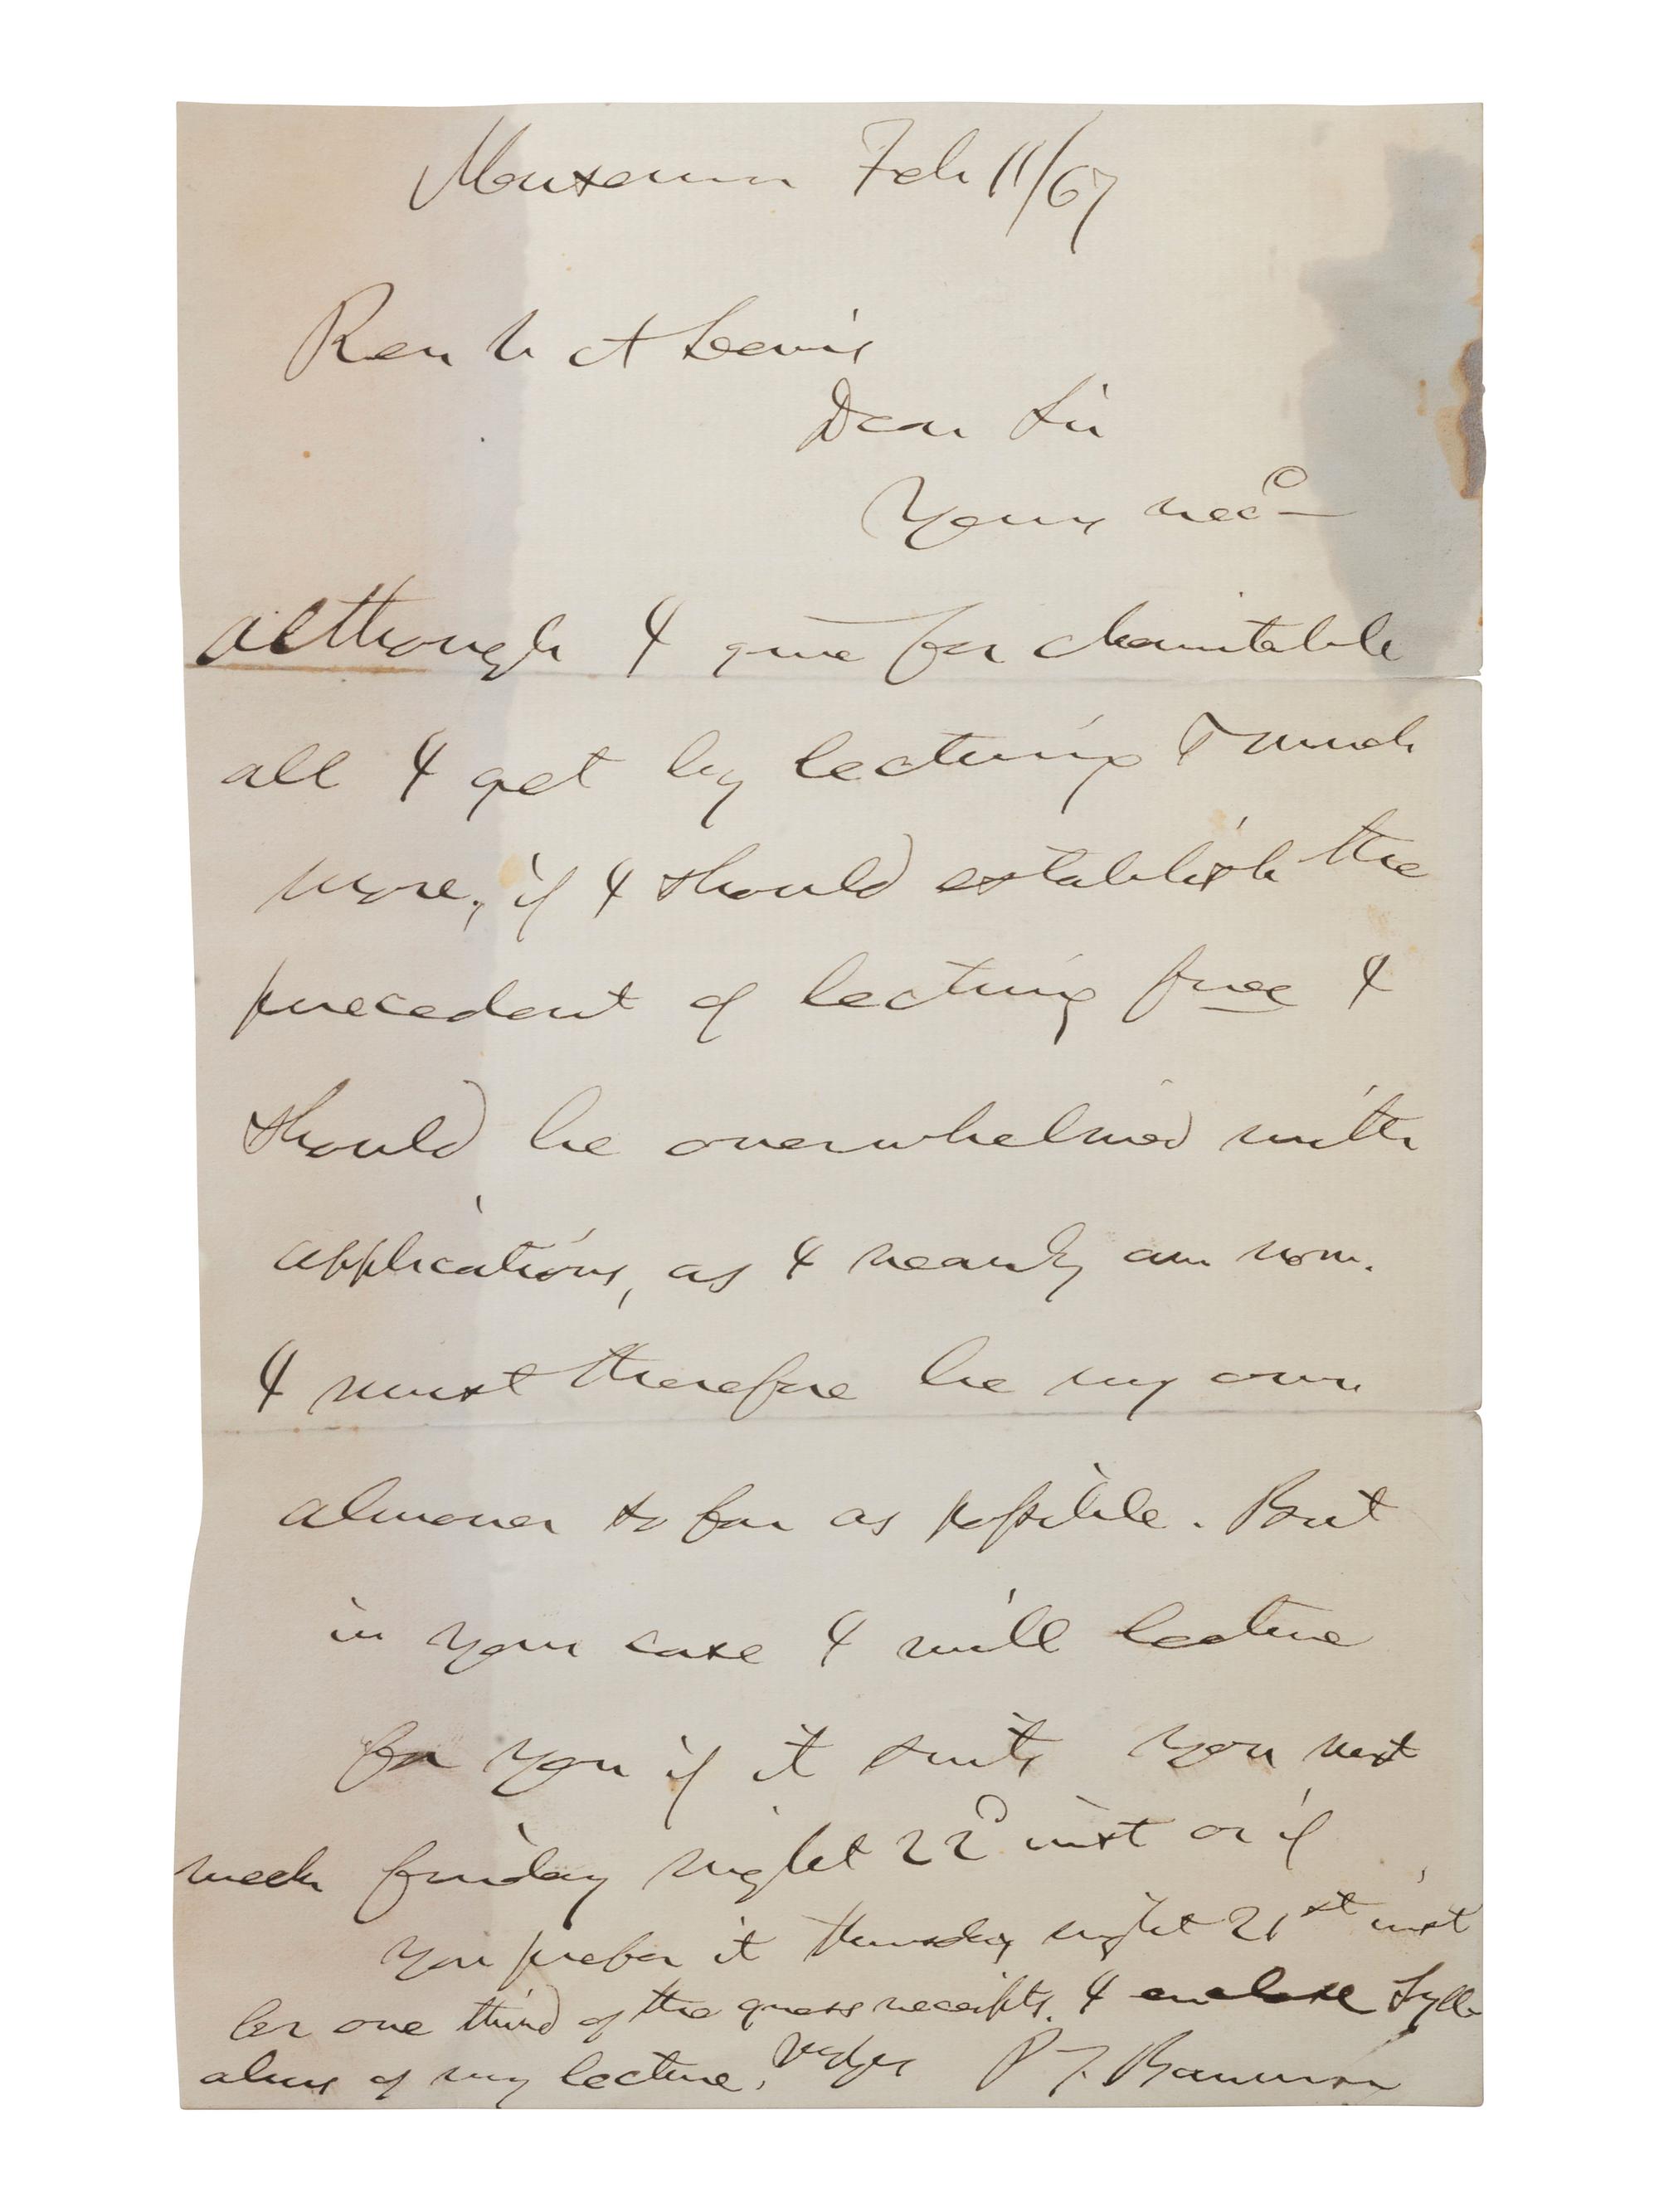 Museum Feb 11/67
Rev W A Lewis
Dear Sir
Yours recd
although I give for charitable
all I get by lecturing & much
more, if I should establish the
precedent of lecturing free I
should be overwhelmed with
applications, as I nearly am now.
I must therefore be my own
almoner so far as possible. But
in your case I will lecture
for you if it suits you next
week friday night 22d inst or if
you prefer it thursday night 21st inst
for one third of the gross receipts. I enclose Syll-
abus of my lecture. P. T. Barnum